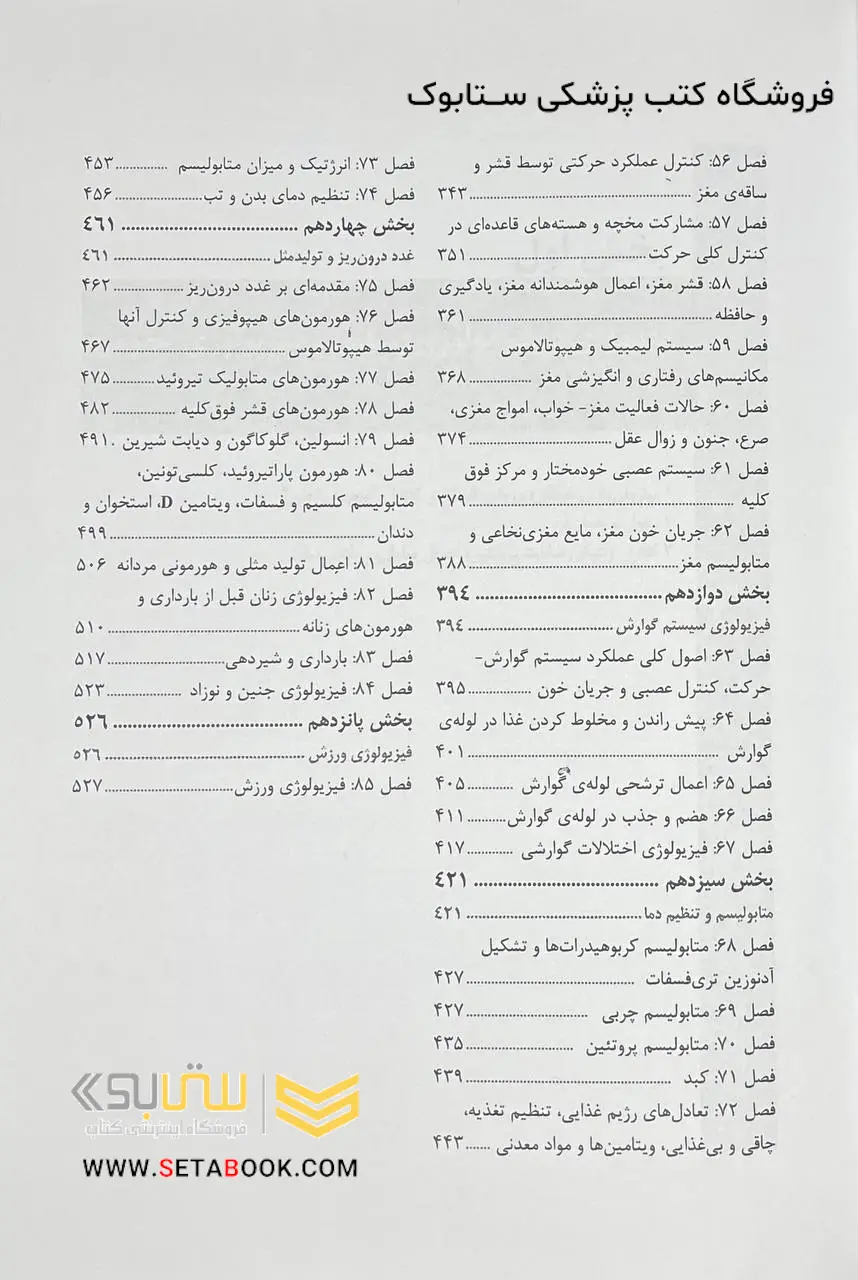 فروشگاه کتب پزشکی ستابوک
فصل ۵۶: کنترل عملکرد حرکتی توسط قشر و
ساقه‌ی مغز ........ ۳۴۳
فصل ۵۷: مشارکت مخچه و هسته‌های قاعده‌ای در
کنترل کلی حرکت ........ ۳۵۱
فصل ۵۸: قشر مغز، اعمال هوشمندانه مغز، یادگیری
و حافظه ........ ۳۶۱
فصل ۵۹: سیستم لیمبیک و هیپوتالاموس
مکانیسم‌های رفتاری و انگیزشی مغز ........ ۳۶۸
فصل ۶۰: حالات فعالیت مغز- خواب، امواج مغزی،
صرع، جنون و زوال عقل ........ ۳۷۴
فصل ۶۱: سیستم عصبی خودمختار و مرکز فوق
کلیه ........ ۳۷۹
فصل ۶۲: جریان خون مغز، مایع مغزی‌نخاعی و
متابولیسم مغز ........ ۳۸۸
بخش دوازدهم ........ ۳۹٤
فیزیولوژی سیستم گوارش ........ ۳۹٤
فصل ۶۳: اصول کلی عملکرد سیستم گوارش-
حرکت، کنترل عصبی و جریان خون ........ ۳۹۵
فصل ۶۴: پیش راندن و مخلوط کردن غذا در لوله‌ی
گوارش ........ ۴۰۱
فصل ۶۵: اعمال ترشحی لوله‌ی گوارش ........ ۴۰۵
فصل ۶۶: هضم و جذب در لوله‌ی گوارش ........ ۴۱۱
فصل ۶۷: فیزیولوژی اختلالات گوارشی ........ ۴۱۷
بخش سیزدهم ........ ٤۲۱
متابولیسم و تنظیم دما ........ ٤۲۱
فصل ۶۸: متابولیسم کربوهیدرات‌ها و تشکیل
آدنوزین تری‌فسفات ........ ۴۲۷
فصل ۶۹: متابولیسم چربی ........ ۴۲۷
فصل ۷۰: متابولیسم پروتئین ........ ۴۳۵
فصل ۷۱: کبد ........ ۴۳۹
فصل ۷۲: تعادل‌های رژیم غذایی، تنظیم تغذیه،
چاقی و بی‌غذایی، ویتامین‌ها و مواد معدنی ........ ۴۴۳
فصل ۷۳: انرژتیک و میزان متابولیسم ........ ۴۵۳
فصل ۷۴: تنظیم دمای بدن و تب ........ ۴۵۶
بخش چهاردهم ........ ٤٦۱
غدد درون‌ریز و تولیدمثل ........ ٤٦۱
فصل ۷۵: مقدمه‌ای بر غدد درون‌ریز ........ ۴۶۲
فصل ۷۶: هورمون‌های هیپوفیزی و کنترل آنها
توسط هیپوتالاموس ........ ۴۶۷
فصل ۷۷: هورمون‌های متابولیک تیروئید ........ ۴۷۵
فصل ۷۸: هورمون‌های قشر فوق‌کلیه ........ ۴۸۲
فصل ۷۹: انسولین، گلوکاگون و دیابت شیرین . ۴۹۱
فصل ۸۰: هورمون پاراتیروئید، کلسی‌تونین،
متابولیسم کلسیم و فسفات، ویتامین D، استخوان و
دندان ........ ۴۹۹
فصل ۸۱: اعمال تولید مثلی و هورمونی مردانه ۵۰۶
فصل ۸۲: فیزیولوژی زنان قبل از بارداری و
هورمون‌های زنانه ........ ۵۱۰
فصل ۸۳: بارداری و شیردهی ........ ۵۱۷
فصل ۸۴: فیزیولوژی جنین و نوزاد ........ ۵۲۳
بخش پانزدهم ........ ۵۲٦
فیزیولوژی ورزش ........ ۵۲٦
فصل ۸۵: فیزیولوژی ورزش ........ ۵۲۷
ستابوک
فروشگاه اینترنتی کتاب
WWW.SETABOOK.COM